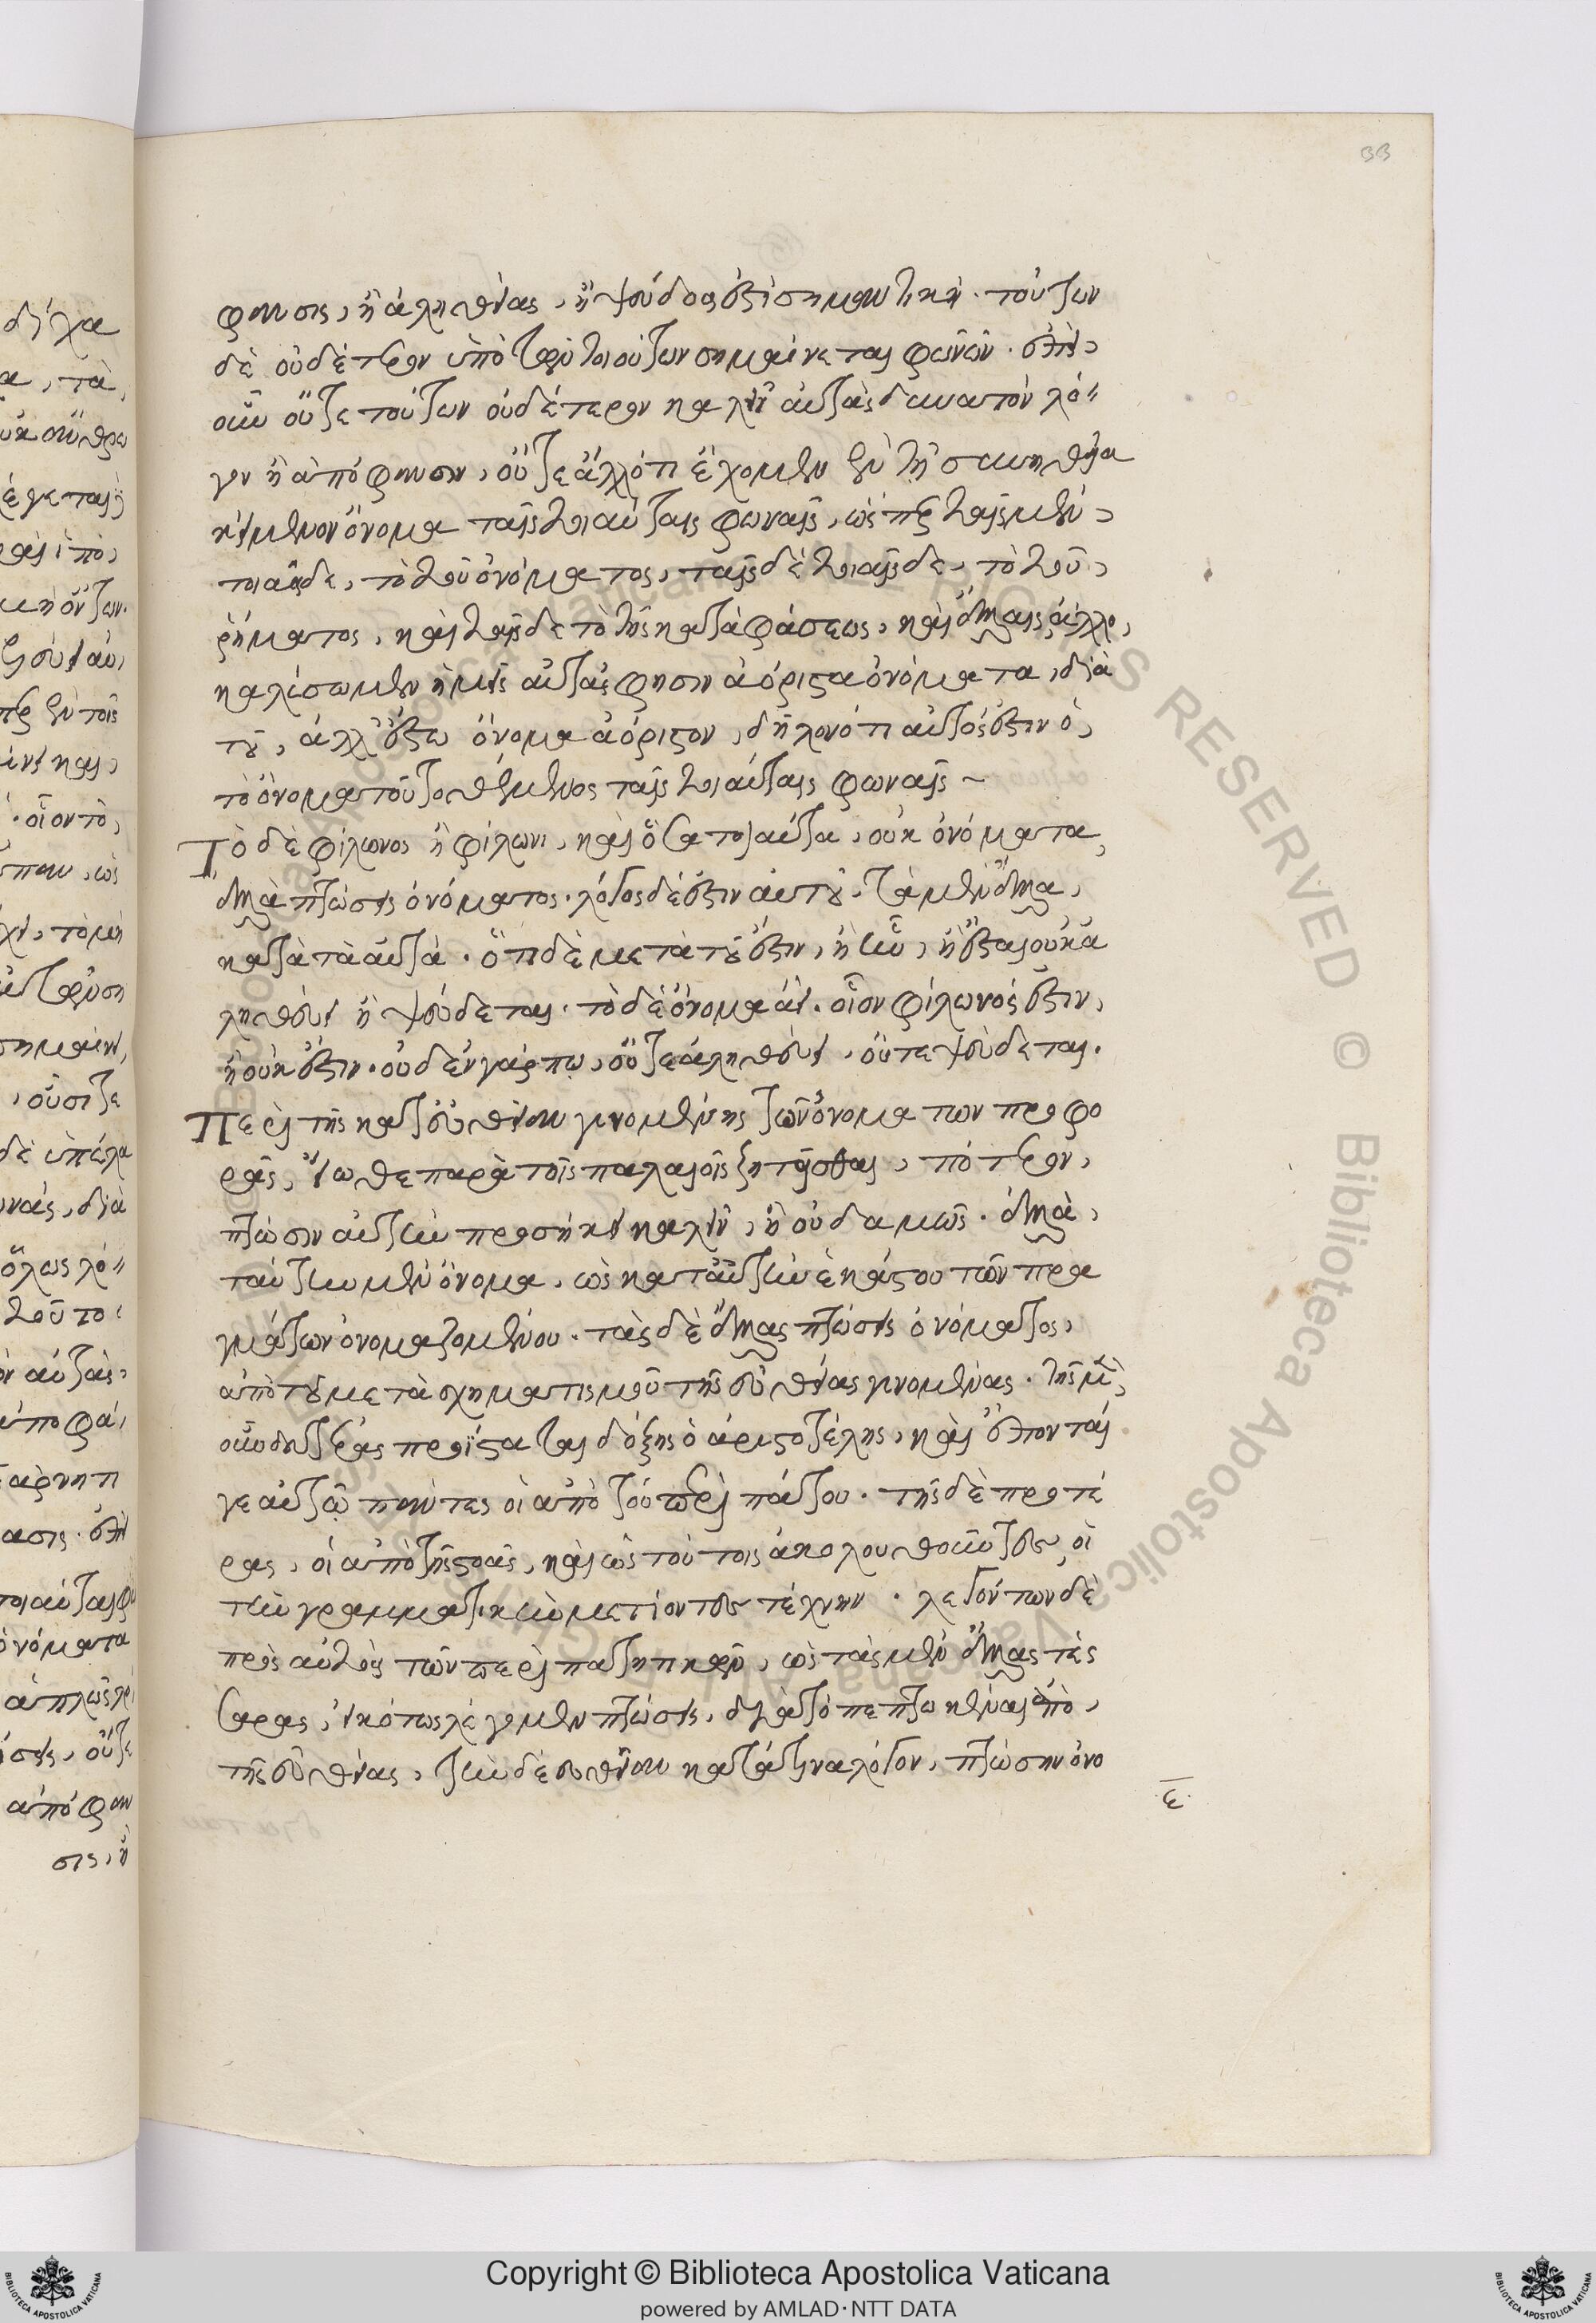 33
φασις, ἢ ἀληθείας, ἢ ψεύδους ἐστὶ σημαντική. τούτων
δὲ οὐδέτερον ὑπὸ τῶν τοιούτων σημαίνεται φωνῶν. ἐπεὶ
οὖν οὔτε τούτων οὐδέτερον καλεῖν αὐτὰς δυνατὸν λό-
γον ἢ ἀπόφασιν, οὔτε ἄλλό τι ἔχομεν ἐν τῇ συνηθείᾳ
κείμενον ὄνομα ταῖς τοιαύταις φωναῖς, ὥσπερ ταῖς μὲν
τοιαῖσδε, τὸ τοῦ ὀνόματος, ταῖς δὲ τοιαῖσδε, τὸ τοῦ
ῥήματος, καὶ ταῖσδε τὸ τῆς καταφάσεως, καὶ ἄλλαις ἄλλο,
καλέσωμεν ἡμεῖς αὐτάς φησιν ἀόριστα ὀνόματα, διὰ
τοῦ, ἀλλ' ἔστω ὄνομα ἀόριστον, δηλονότι αὐτός ἐστιν ὁ
τὸ ὄνομα τοῦτο θέμενος ταῖς τοιαύταις φωναῖς ~
Τὸ δὲ φίλωνος ἢ φίλωνι, καὶ ὅσα τοιαῦτα, οὐκ ὀνόματα
ἀλλὰ πτώσεις ὀνόματος. λόγος δέ ἐστιν αὐτοῦ, τὰ μὲν ἄλλα
κατὰ τὰ αὐτά. ὅτι δὲ μετὰ τοῦ ἔστιν, ἢ ἦν, ἢ ἔσται οὐκ ἀ
ληθεύει ἢ ψεύδεται. τὸ δὲ ὄνομα ἀεί. οἷον φίλωνός ἐστιν,
ἢ οὐκ ἔστιν. οὐδὲν γάρ πω, οὔτε ἀληθεύει, οὔτε ψεύδεται.
Περὶ τῆς κατ' εὐθεῖαν γινομένης τῶν ὀνομάτων προφο
ρᾶς, εἴωθε παρὰ τοῖς παλαιοῖς ζητεῖσθαι, πότερον
πτῶσιν αὐτὴν προσήκει καλεῖν, ἢ οὐδαμῶς. ἀλλὰ
ταύτην μὲν ὄνομα, ὡς κατ' αὐτὴν ἑκάστου τῶν πρα
γμάτων ὀνομαζομένου. τὰς δὲ ἄλλας πτώσεις ὀνόματος
ἀπὸ τοῦ μετασχηματισμοῦ τῆς εὐθείας γινομένας. τῆς μὲν
οὖν δευτέρας προΐσταται δόξης ὁ ἀριστοτέλης, καὶ ἕπονταί
γε αὐτῷ πάντες οἱ ἀπὸ τοῦ περιπάτου. τῆς δὲ προτέ
ρας, οἱ ἀπὸ τῆς στοᾶς, καὶ ὡς τούτοις ἀκολουθοῦντες οἱ
τὴν γραμματικὴν μετιόντες τέχνην. λεγόντων δὲ
πρὸς αὐτοὺς τῶν περιπατητικῶν, ὡς τὰς μὲν ἄλλας τέσ
σαρας, εἰκότως λέγομεν πτώσεις, διὰ τὸ πεπτωκέναι ἀπὸ
τῆς εὐθείας, τὴν δὲ εὐθεῖαν κατὰ τίνα λόγον, πτῶσιν ὀνο
ε